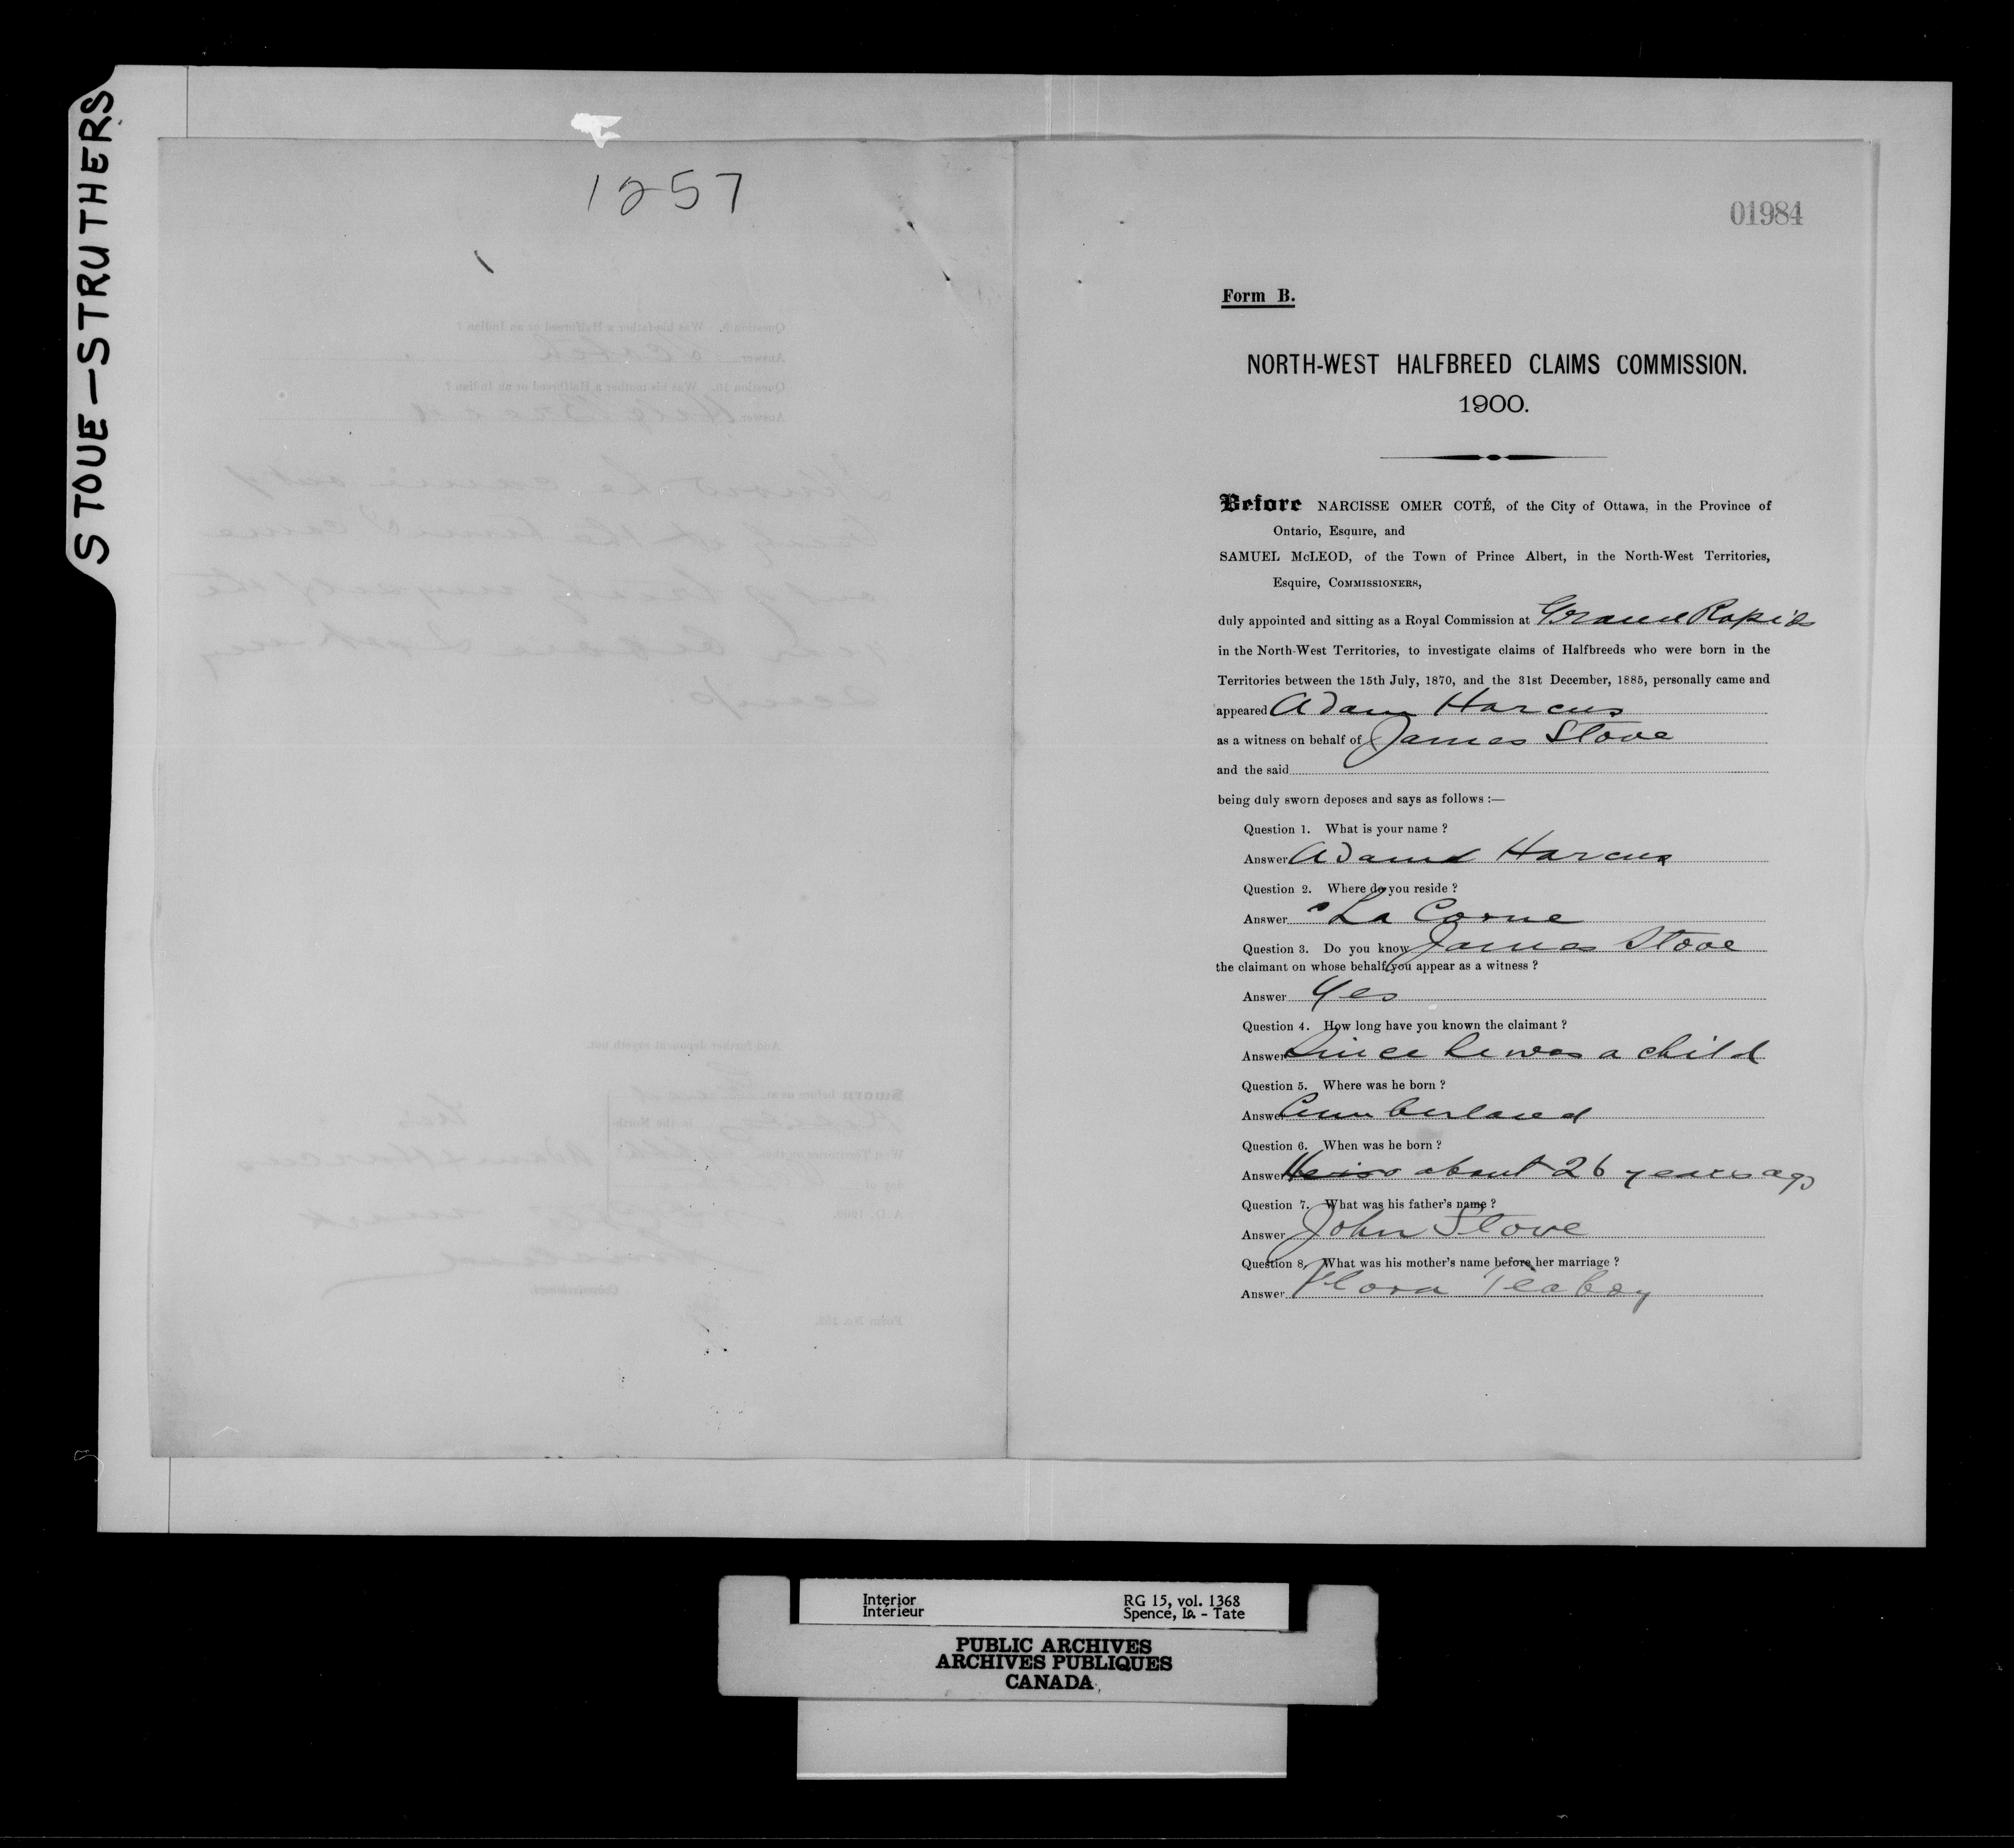 STOVE—STRUTHERS
1257
01984
Form B.
NORTH-WEST HALFBREED CLAIMS COMMISSION.
1900.
Before NARCISSE OMER COTÉ, of the City of Ottawa, in the Province of
Ontario, Esquire, and
SAMUEL McLEOD, of the Town of Prince Albert, in the North-West Territories,
Esquire, COMMISSIONERS,
duly appointed and sitting as a Royal Commission at Grand Rapids
in the North-West Territories, to investigate claims of Halfbreeds who were born in the
Territories between the 15th July, 1870, and the 31st December, 1885, personally came and
appeared Adam Harcus
as a witness on behalf of James Stove
and the said
being duly sworn deposes and says as follows :—
Question 1. What is your name ?
Answer Adam Harcus
Question 2. Where do you reside ?
Answer La Corne
Question 3. Do you know James Stove
the claimant on whose behalf you appear as a witness ?
Answer Yes
Question 4. How long have you known the claimant ?
Answer Since he was a child
Question 5. Where was he born ?
Answer Cumberland
Question 6. When was he born ?
Answer about 26 years ago
Question 7. What was his father's name ?
Answer John Stove
Question 8. What was his mother's name before her marriage ?
Answer Flora
Interior
Intérieur
RG 15, vol. 1368
Spence, Is. - Tate
PUBLIC ARCHIVES
ARCHIVES PUBLIQUES
CANADA